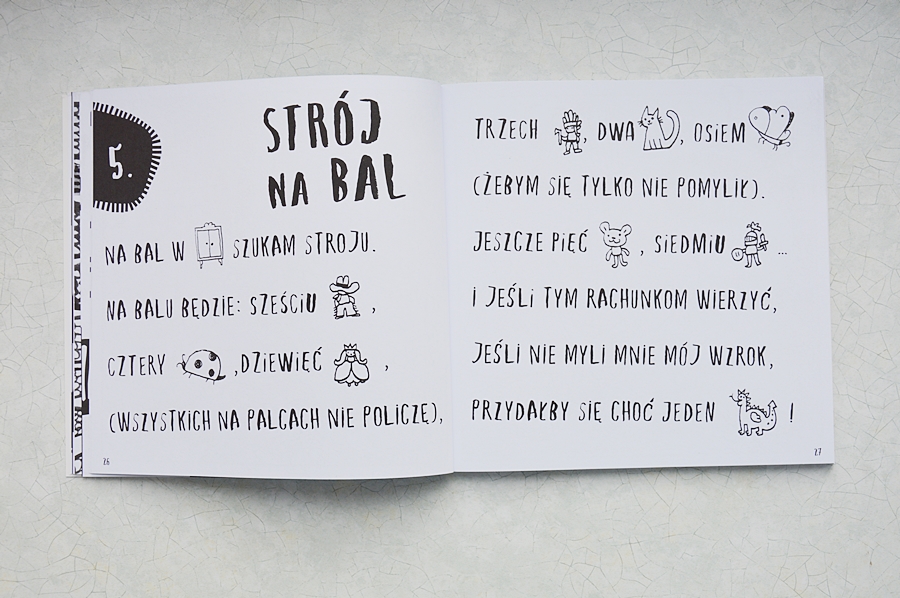 5.
STRÓJ
NA BAL
NA BAL W SZUKAM STROJU.
NA BALU BĘDZIE: SZEŚCIU ,
CZTERY ,DZIEWIĘĆ ,
(WSZYSTKICH NA PALCACH NIE POLICZĘ),
26
TRZECH , DWA , OSIEM
(ŻEBYM SIĘ TYLKO NIE POMYLIŁ).
JESZCZE PIĘĆ , SIEDMIU ...
I JEŚLI TYM RACHUNKOM WIERZYĆ,
JEŚLI NIE MYLI MNIE MÓJ WZROK,
PRZYDAŁBY SIĘ CHOĆ JEDEN !
27